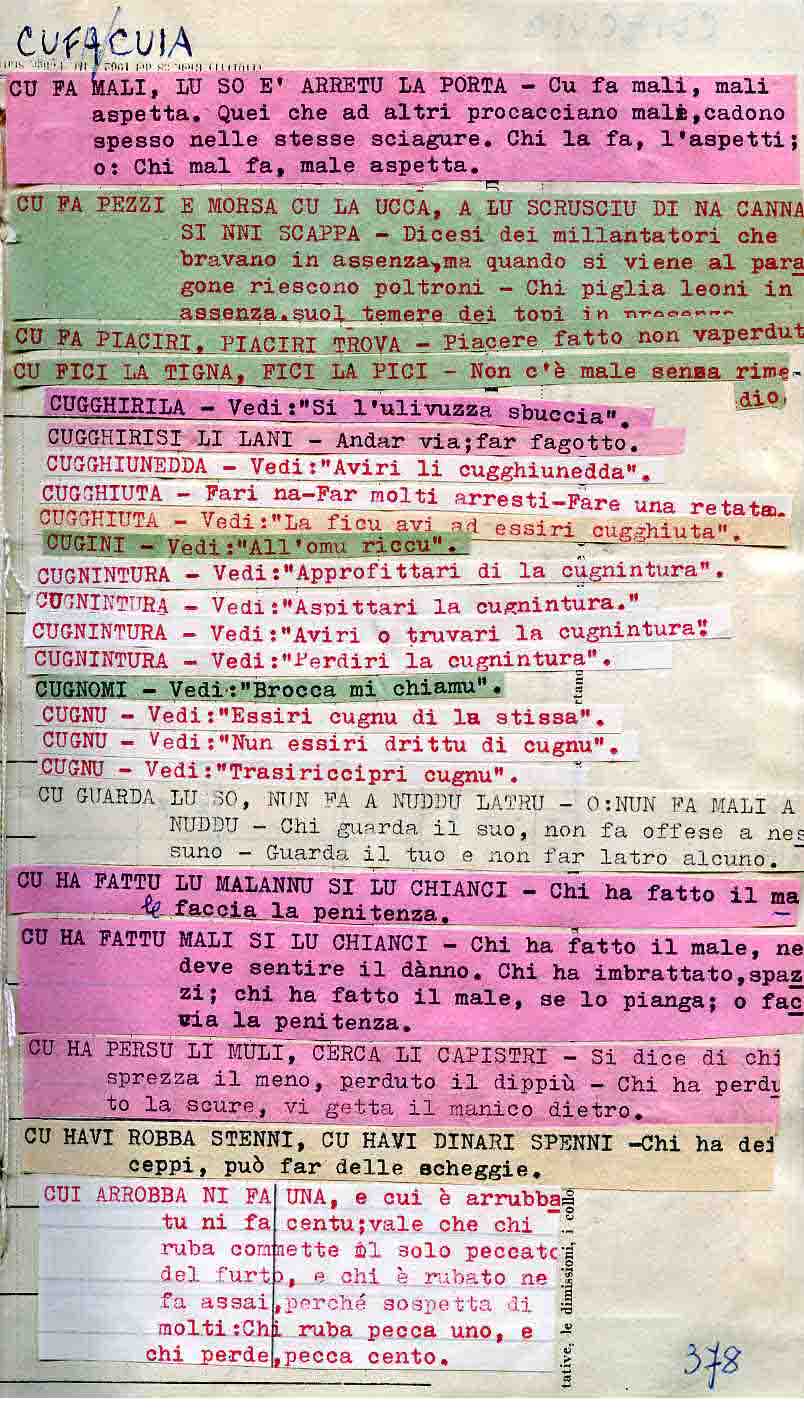 CUFA/CUIA
CU FA MALI, LU SO E' ARRETU LA PORTA - Cu fa mali, mali
aspetta. Quei che ad altri procacciano male,cadono
spesso nelle stesse sciagure. Chi la fa, l'aspetti;
o: Chi mal fa, male aspetta.
CU FA PEZZI E MORSA CU LA UCCA, A LU SCRUSCIU DI NA CANNA
SI NNI SCAPPA - Dicesi dei millantatori che
bravano in assenza,ma quando si viene al para
gone riescono poltroni - Chi piglia leoni in
assenza.suol temere dei topi in presenza
CU FA PIACIRI, PIACIRI TROVA - Piacere fatto non vaperdut
CU FICI LA TIGNA, FICI LA PICI - Non c'è male senza rime-
dio
CUGGHIRILA - Vedi:"Si l'ulivuzza sbuccia".
CUGGHIRISI LI LANI - Andar via;far fagotto.
CUGGHIUNEDDA - Vedi:"Aviri li cugghiunedda".
CUGGHIUTA - Fari na-Far molti arresti-Fare una retata.
CUGGHIUTA - Vedi:"La ficu avi ad essiri cugghiuta".
CUGINI - Vedi:"All'omu riccu".
CUGNINTURA - Vedi:"Approfittari di la cugnintura".
CUGNINTURA - Vedi:"Aspittari la cugnintura."
CUGNINTURA - Vedi:"Aviri o truvari la cugnintura".
CUGNINTURA - Vedi:"Perdiri la cugnintura".
CUGNOMI - Vedi:"Brocca mi chiamu".
rtano
CUGNU - Vedi:"Essiri cugnu di la stissa".
CUGNU - Vedi:"Nun essiri drittu di cugnu".
CUGNU - Vedi:"Trasiriccipri cugnu".
CU GUARDA LU SO, NUN FA A NUDDU LATRU - O:NUN FA MALI A
NUDDU - Chi guarda il suo, non fa offese a nes
suno - Guarda il tuo e non far latro alcuno.
CU HA FATTU LU MALANNU SI LU CHIANCI - Chi ha fatto il ma
le faccia la penitenza.
CU HA FATTU MALI SI LU CHIANCI - Chi ha fatto il male, ne
deve sentire il dànno. Chi ha imbrattato,spaz
zi; chi ha fatto il male, se lo pianga; o fac
cia la penitenza.
CU HA PERSU LI MULI, CERCA LI CAPISTRI - Si dice di chi
sprezza il meno, perduto il dippiù - Chi ha perdu
to la scure, vi getta il manico dietro.
CU HAVI ROBBA STENNI, CU HAVI DINARI SPENNI -Chi ha dei
ceppi, può far delle scheggie.
CUI ARROBBA NI FA UNA, e cui è arrubba
tu ni fa centu;vale che chi
ruba commette il solo peccato
del furto, e chi è rubato ne
fa assai,perché sospetta di
molti:Chi ruba pecca uno, e
chi perde,pecca cento.
tative, le dimissioni, i collo
378